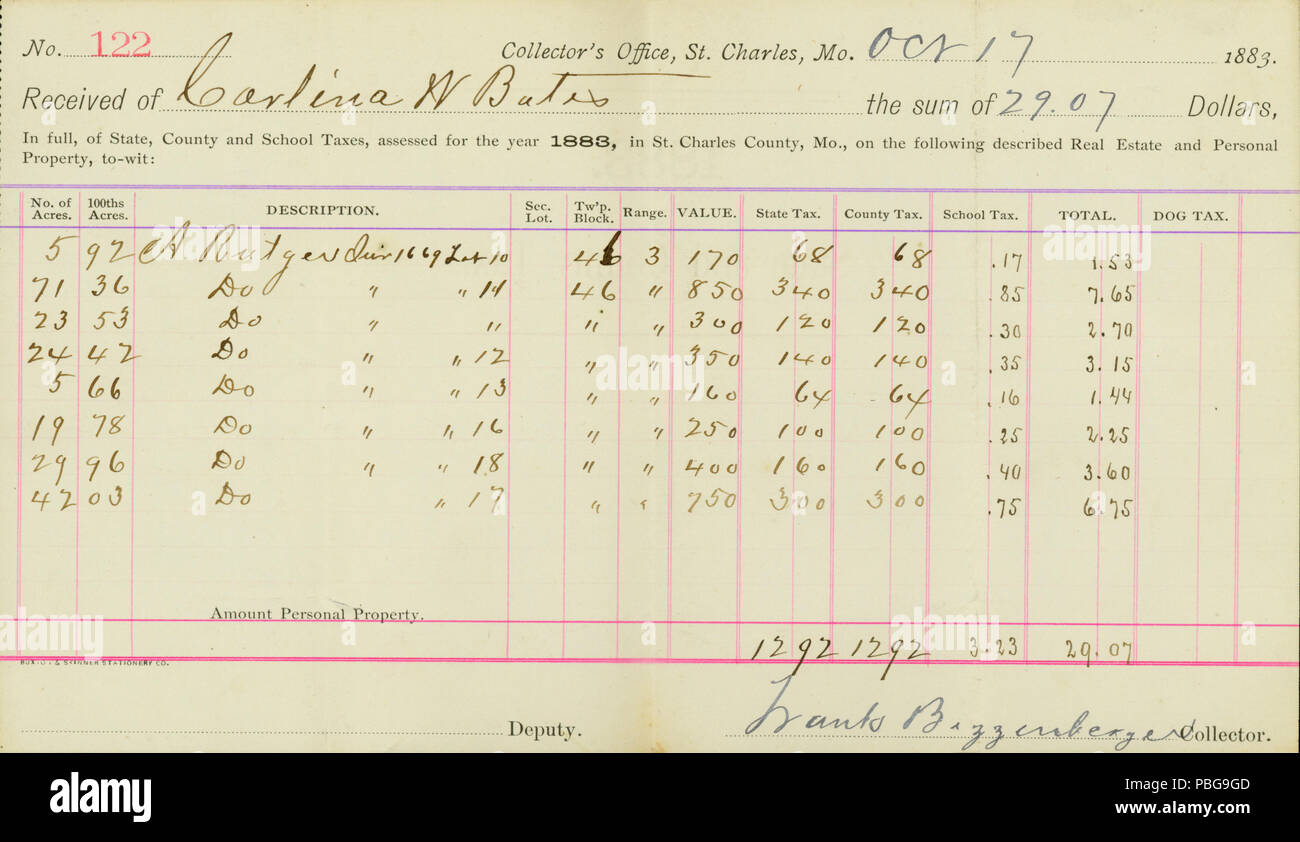 No. 122 Collector's Office, St. Charles, Mo. Oct 17 1883.
Received of Carlina W Bates the sum of 29.07 Dollars,
In full, of State, County and School Taxes, assessed for the year 1883, in St. Charles County, Mo., on the following described Real Estate and Personal
Property, to-wit:
No. of Acres. 100ths Acres. DESCRIPTION. Sec. Lot. Tw'p. Block. Range. VALUE. State Tax. County Tax. School Tax. TOTAL. DOG TAX.
5 92 A Rutger Sur 1669 Lot 10 46 3 170 68 68 .17 1.53
71 36 Do " " 11 46 " 850 3 40 3 40 .85 7.65
23 53 Do " " " " 300 1 20 1 20 .30 2.70
24 42 Do " " 12 " " 350 1 40 1 40 .35 3.15
5 66 Do " " 13 " " 160 64 64 .16 1.44
19 78 Do " " 16 " " 250 1 00 1 00 .25 2.25
29 96 Do " " 18 " " 400 1 60 1 60 .40 3.60
42 03 Do " 17 " " 750 3 00 3 00 .75 6.75
Amount Personal Property.
12 92 12 92 3.23 29.07
BUXTON & SKINNER STATIONERY CO.
Deputy. Collector.
alamy
alamy
Image ID: PBG9GD
www.alamy.com